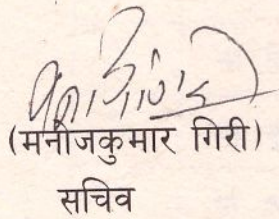 (मनोजकुमार गिरी)
सचिव